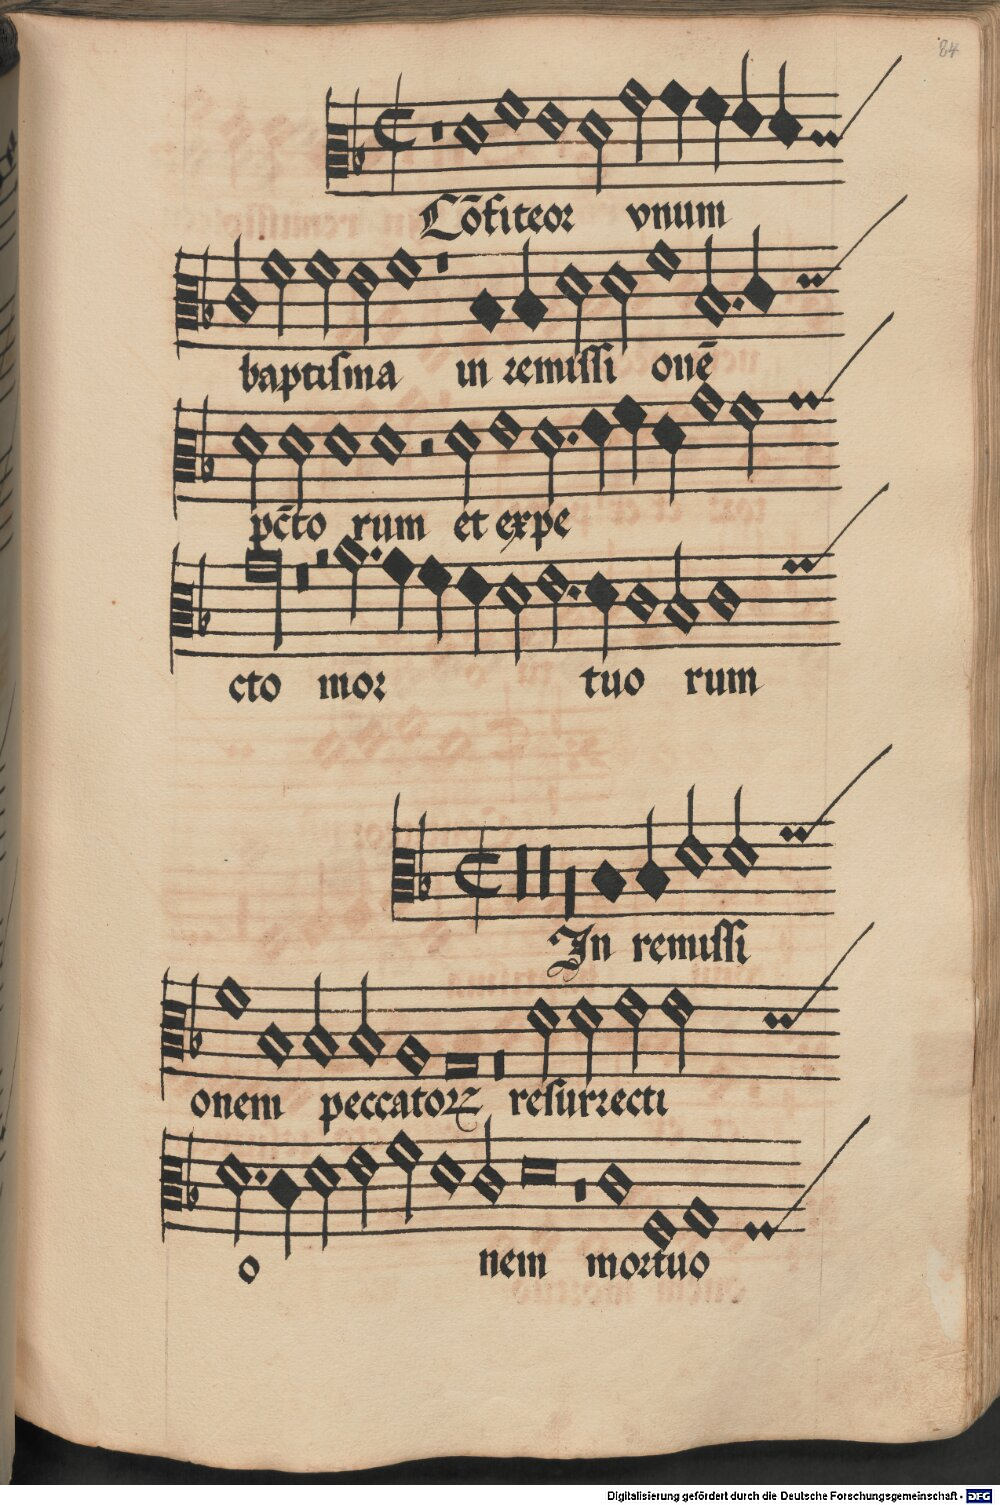 84
Cōfiteor vnum
baptisma in remissi onē
pc̄to rum et expe
cto mor tuo rum
In remissi
onem peccatorꝝ resurrecti
o nem mortuo
Digitalisierung gefördert durch die Deutsche Forschungsgemeinschaft - DFG